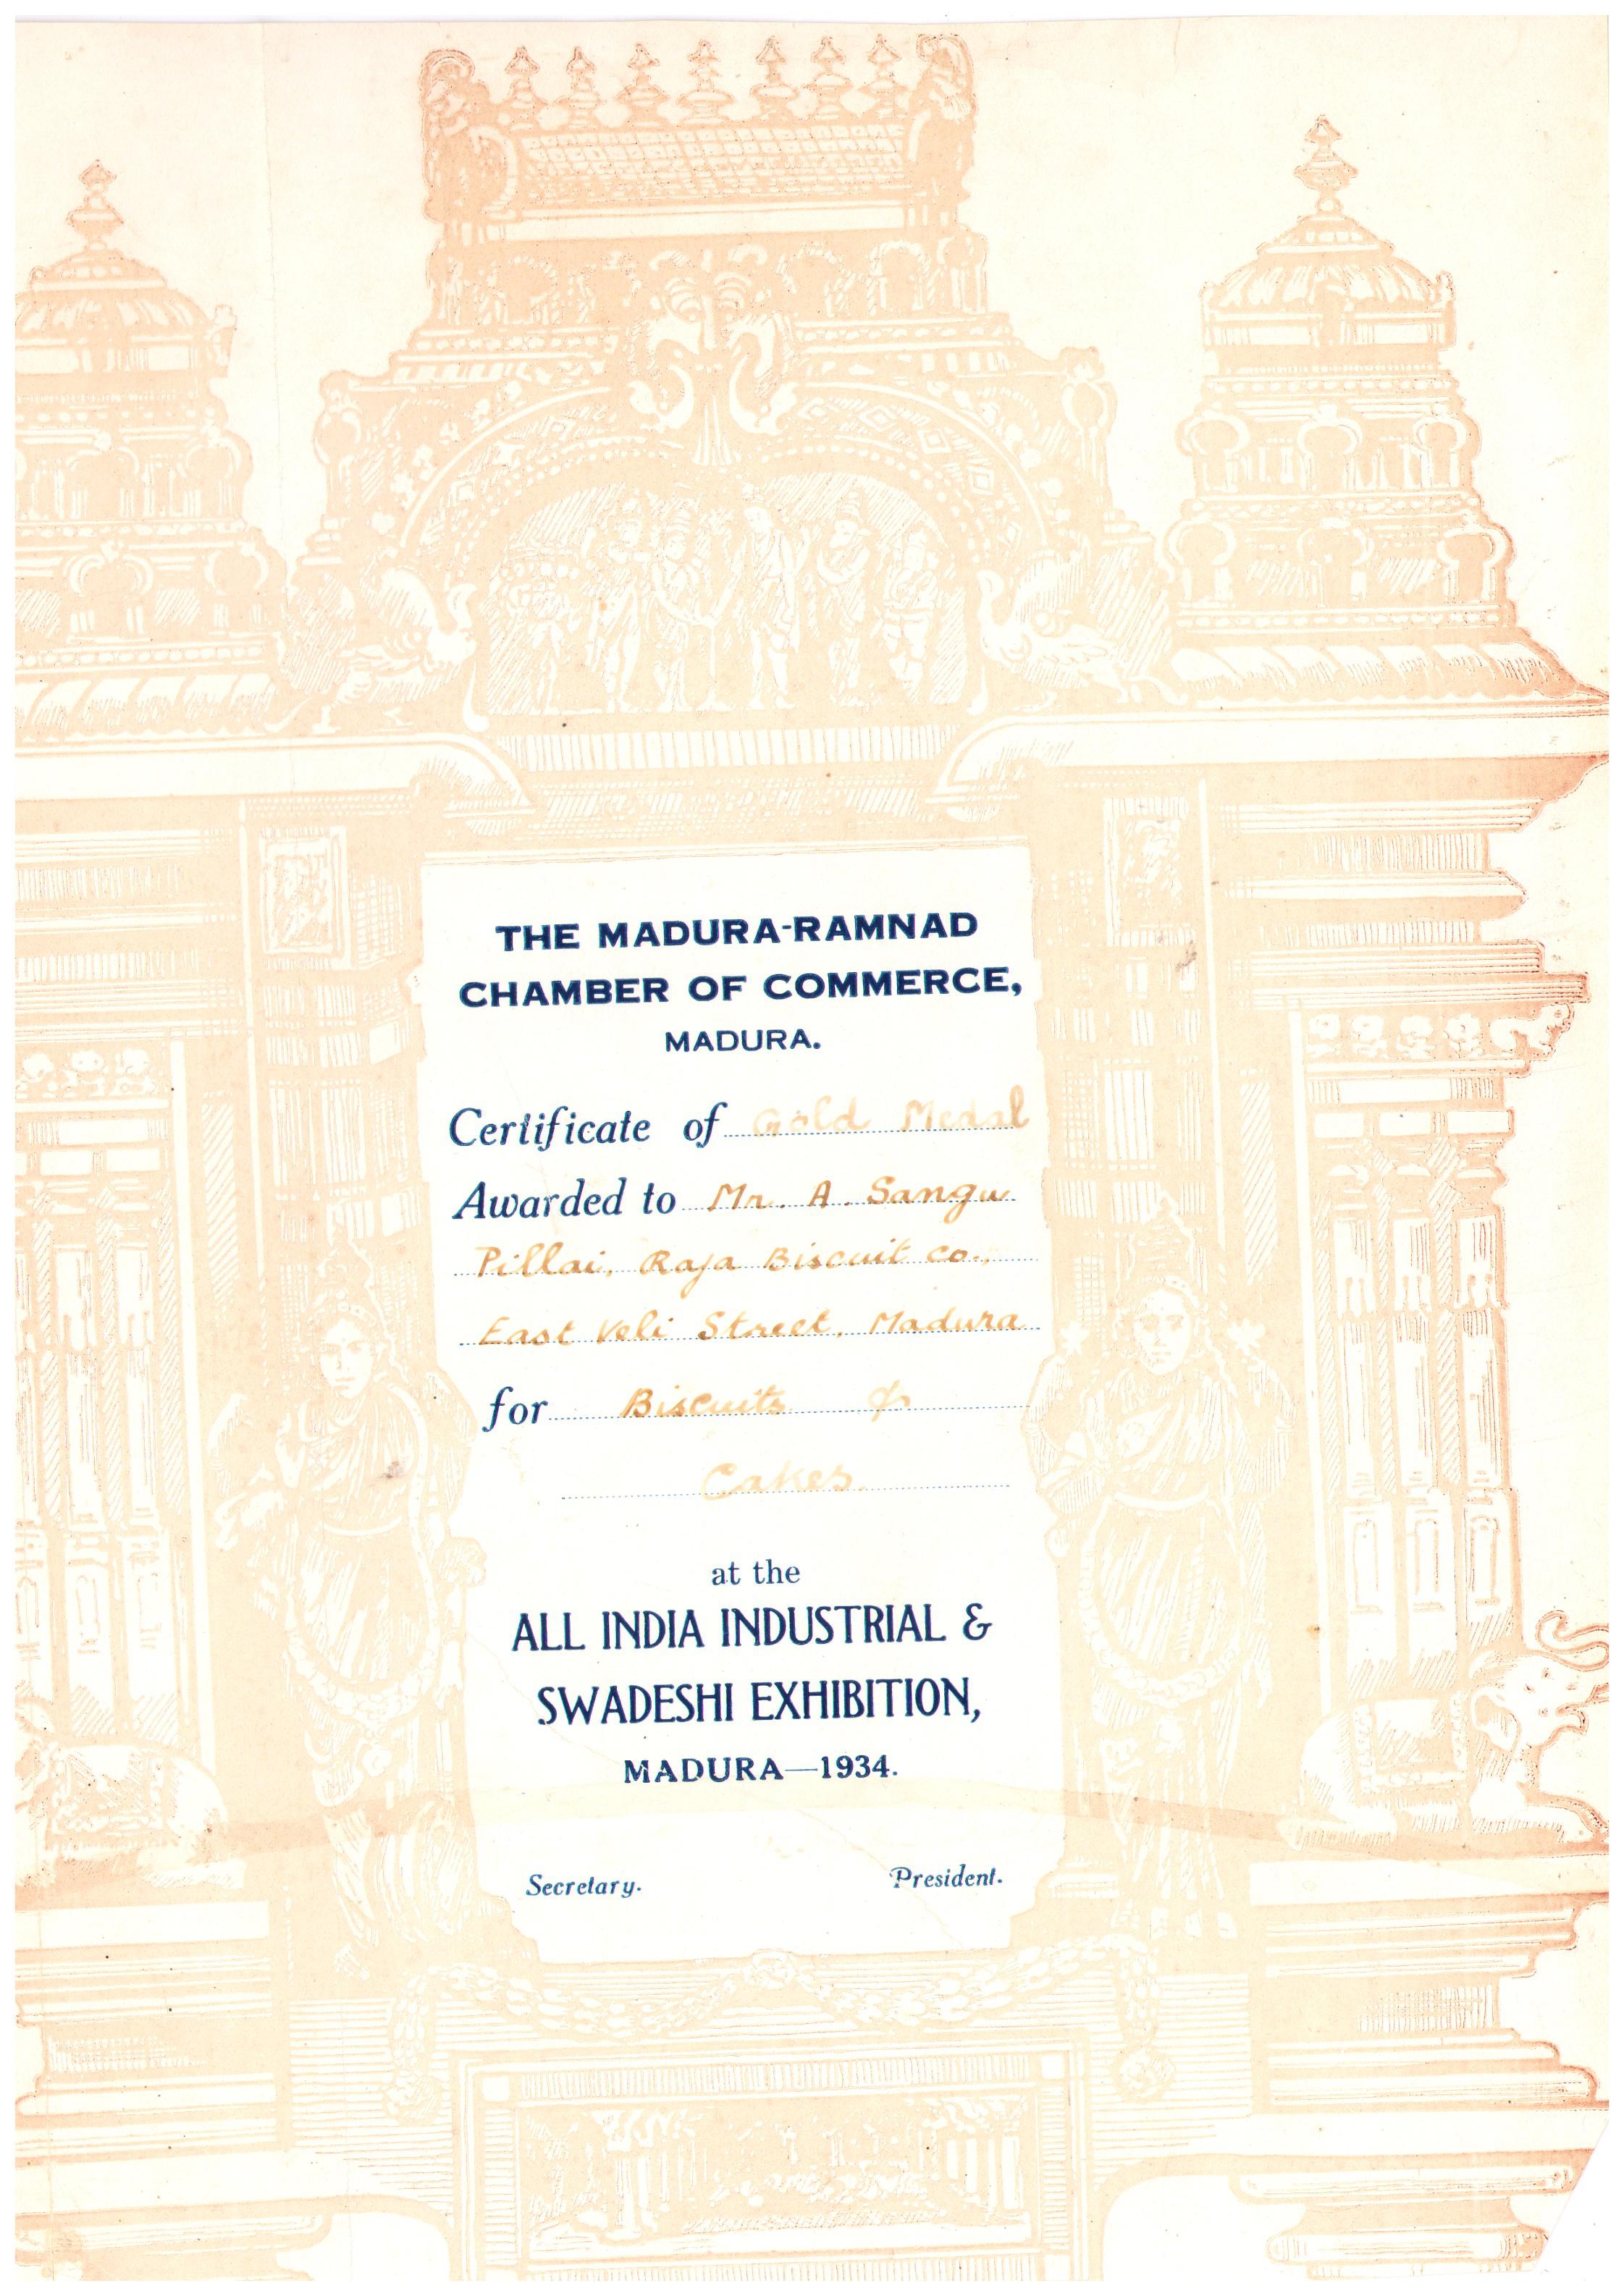 THE MADURA-RAMNAD
CHAMBER OF COMMERCE,
MADURA.
Certificate of Gold Medal
Awarded to Mr. A. Sangu
Pillai, Raja Biscuit Co.,
East Veli Street, Madura
for Biscuits &
Cakes.
at the
ALL INDIA INDUSTRIAL &
SWADESHI EXHIBITION,
MADURA—1934.
Secretary. President.